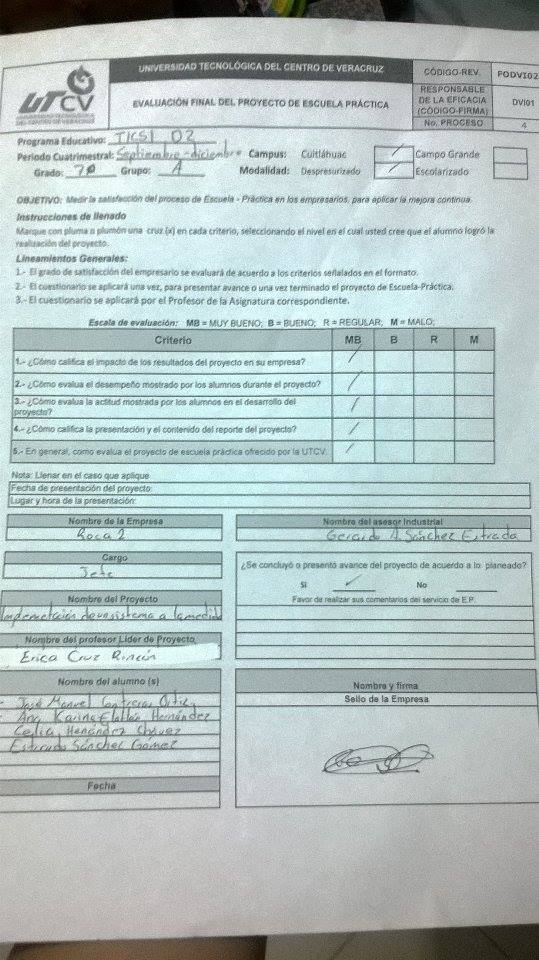 UTCV
UNIVERSIDAD TECNOLÓGICA
DEL CENTRO DE VERACRUZ
UNIVERSIDAD TECNOLÓGICA DEL CENTRO DE VERACRUZ
EVALUACIÓN FINAL DEL PROYECTO DE ESCUELA PRÁCTICA
CÓDIGO-REV. PODVI02
RESPONSABLE DE LA EFICACIA (CÓDIGO-FIRMA) DVI01
No. PROCESO 4
Programa Educativo: TICSI 02
Periodo Cuatrimestral: Septiembre-diciembre Campus: Cuitláhuac / Campo Grande
Grado: 7º Grupo: A Modalidad: Despresurizado / Escolarizado
OBJETIVO: Medir la satisfacción del proceso de Escuela - Práctica en los empresarios, para aplicar la mejora continua.
Instrucciones de llenado
Marque con pluma o plumón una cruz (x) en cada criterio, seleccionando el nivel en el cual usted cree que el alumno logró la
realización del proyecto.
Lineamientos Generales:
1.- El grado de satisfacción del empresario se evaluará de acuerdo a los criterios señalados en el formato.
2.- El cuestionario se aplicará una vez, para presentar avance o una vez terminado el proyecto de Escuela-Práctica.
3.- El cuestionario se aplicará por el Profesor de la Asignatura correspondiente.
Escala de evaluación: MB = MUY BUENO; B = BUENO; R = REGULAR; M = MALO;
Criterio MB B R M
1.- ¿Cómo califica el impacto de los resultados del proyecto en su empresa? /
2.- ¿Cómo evalua el desempeño mostrado por los alumnos durante el proyecto? /
3.- ¿Cómo evalua la actitud mostrada por los alumnos en el desarrollo del
proyecto? /
4.- ¿Cómo califica la presentación y el contenido del reporte del proyecto? /
5.- En general, como evalua el proyecto de escuela práctica ofrecido por la UTCV. /
Nota: Llenar en el caso que aplique
Fecha de presentación del proyecto:
Lugar y hora de la presentación:
Nombre de la Empresa
Roca 2
Nombre del asesor Industrial
Gerardo A. Sánchez Estrada
Cargo
Jefe
¿Se concluyó o presentó avance del proyecto de acuerdo a lo planeado?
Si No
Favor de realizar sus comentarios del servicio de E.P.
Nombre del Proyecto
a la medida
Nombre del profesor Líder de Proyecto
Erica Cruz Rincón
Nombre del alumno (s)
José Manuel Contreras Ortiz
Karina Hernández
Celia Hernández Chávez
Sánchez Gómez
Fecha
Nombre y firma
Sello de la Empresa